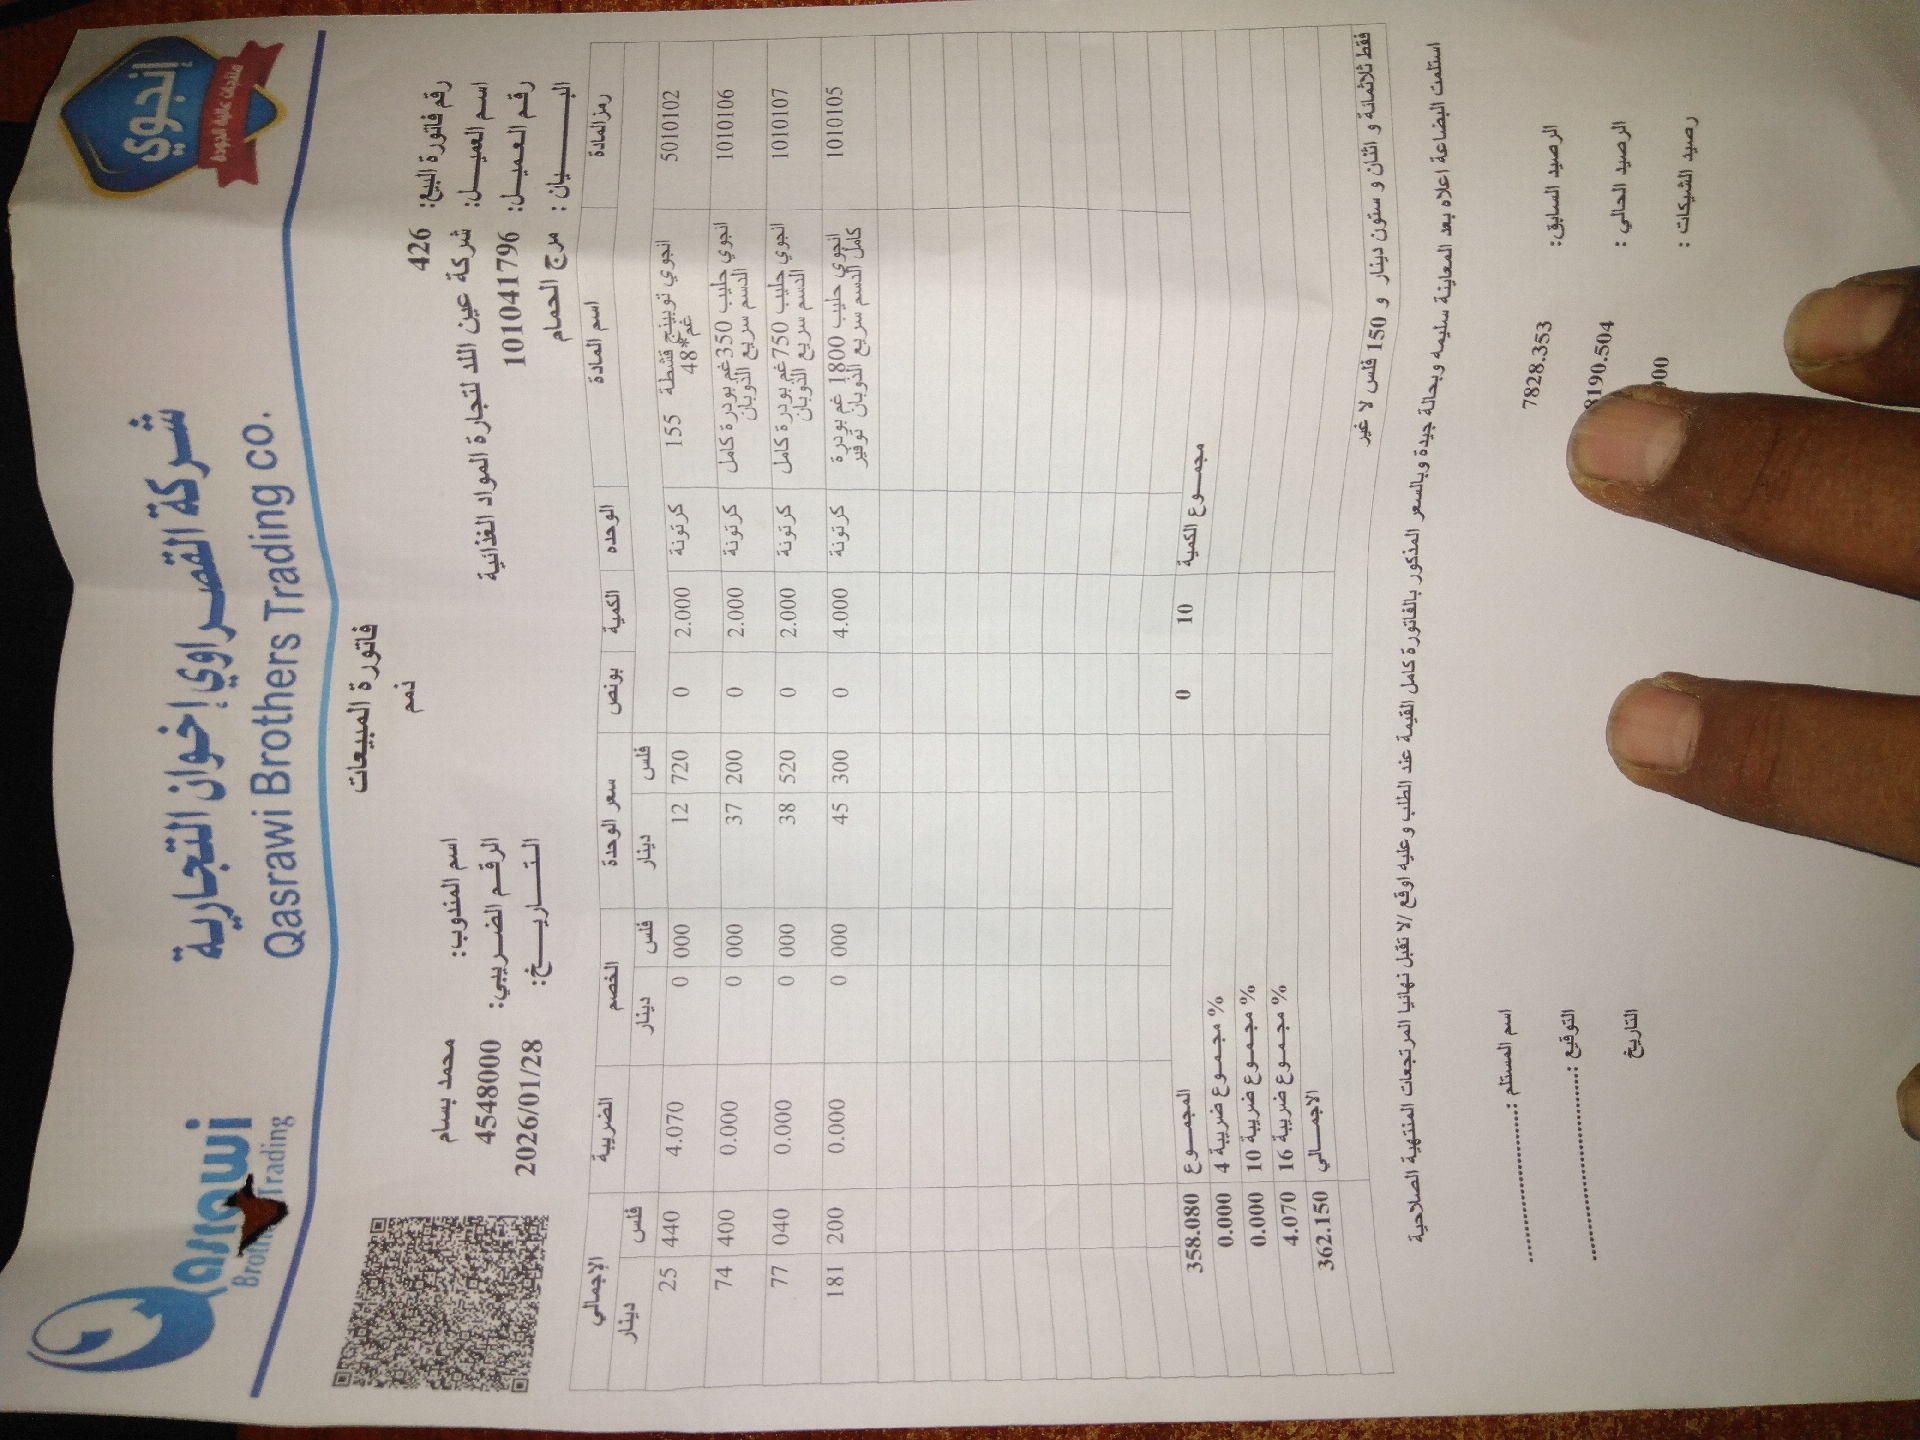 إنجوي
منتجات عالية الجودة
شركة القصراوي إخوان التجارية
Qasrawi Brothers Trading co.
Trading
فاتورة المبيعات
ذمم
رقم فاتورة البيع: 426
اسم العميل: شركة عين اللد لتجارة المواد الغذائية
رقم العميل: 101041796
البيان : مرج الحمام
اسم المندوب: محمد بسام
الرقم الضريبي: 4548000
التاريخ: 2026/01/28
رمز المادة اسم المادة الوحده الكمية بونص سعر الوحدة الخصم الضريبة الإجمالي
دينار فلس دينار فلس دينار فلس
5010102 انجوي توبينج قشطة 155 غم*48 كرتونة 2.000 0 12 720 0 000 4.070 25 440
1010106 انجوي حليب 350غم بودرة كامل الدسم سريع الذوبان كرتونة 2.000 0 37 200 0 000 0.000 74 400
1010107 انجوي حليب 750غم بودرة كامل الدسم سريع الذوبان كرتونة 2.000 0 38 520 0 000 0.000 77 040
1010105 انجوي حليب 1800 غم بودرة كامل الدسم سريع الذوبان توفير كرتونة 4.000 0 45 300 0 000 0.000 181 200
مجموع الكمية 10 0 المجموع 358.080
% مجموع ضريبة 4 0.000
% مجموع ضريبة 10 0.000
% مجموع ضريبة 16 4.070
الاجمالي 362.150
فقط ثلاثمائة و اثنان و ستون دينار و 150 فلس لا غير
استلمت البضاعة اعلاه بعد المعاينة سليمه وبحالة جيدة وبالسعر المذكور بالفاتورة كامل القيمة عند الطلب وعليه اوقع /لا تقبل نهائيا المرتجعات المنتهية الصلاحية
الرصيد السابق: 7828.353
الرصيد الحالي : 8190.504
رصيد الشيكات :
اسم المستلم :......................
التوقيع :............................
التاريخ